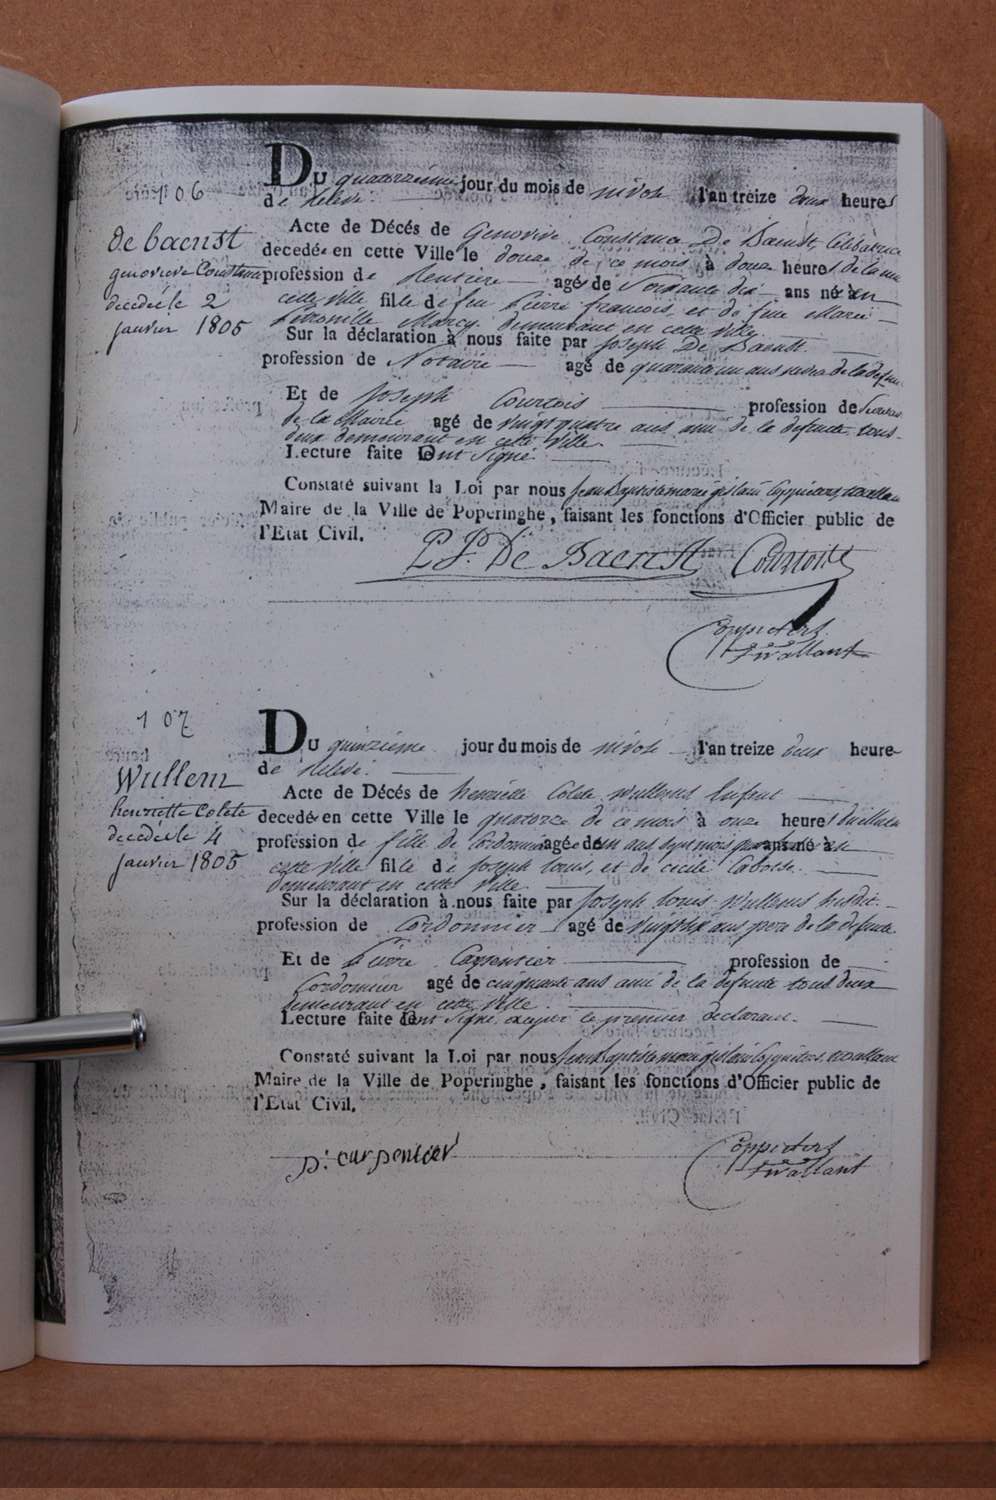 106
de baenst
genovieve Constance
decedé le 2
janvier 1805
Du quatorzième jour du mois de nivose l'an treize deux heures
de Relevé.
Acte de Décés de Genovive Constance De Baenst Celibatrice
decedée en cette Ville le douze de ce mois à douze heures de la nuit
profession de Rentiere agé de Soixante dix ans né à en
cette ville fille de feu Pierre francois, et de feue Marie
Petronille Marcy demeurant en cette ville.
Sur la déclaration à nous faite par Joseph De Baenst
profession de Notaire agé de quarante un ans neveu de la defunte
Et de Joseph Courtois profession de
de la Mairie agé de vingt quatre ans ami de la defunte tous
deux demeurant en cette Ville.
Lecture faite ont Signé
Constaté suivant la Loi par nous Jean Baptiste marie gislain Coppieters
Maire de la Ville de Poperinghe, faisant les fonctions d'Officier public de
l'Etat Civil.
De Baenst Courtois
Coppieters
Stwallant
107
Wullem
henriette Colete
decedé le 4
janvier 1805
Du quinzième jour du mois de nivose l'an treize deux heure
de Relevé.
Acte de Décés de henriette Colete Wullems Enfant
decedée en cette Ville le quatorze de ce mois à onze heures
profession de fille de Cordonnier agé de un ans sept mois ans né à en
cette ville fille de Joseph Louis, et de cecile
demeurant en cette Ville
Sur la déclaration à nous faite par Joseph Louis Wullems susdit
profession de Cordonnier agé de ans pere de la defunte
Et de Pierre Carpentier profession de
Cordonnier agé de cinquante ans ami de la defunte tous deux
demeurant en cette Ville
Lecture faite ont Signé excepté le premier declarant.
Constaté suivant la Loi par nous Jean Baptiste marie gislain Coppieters
Maire de la Ville de Poperinghe, faisant les fonctions d'Officier public de
l'Etat Civil.
p: carpentier
Coppieters
Stwallant